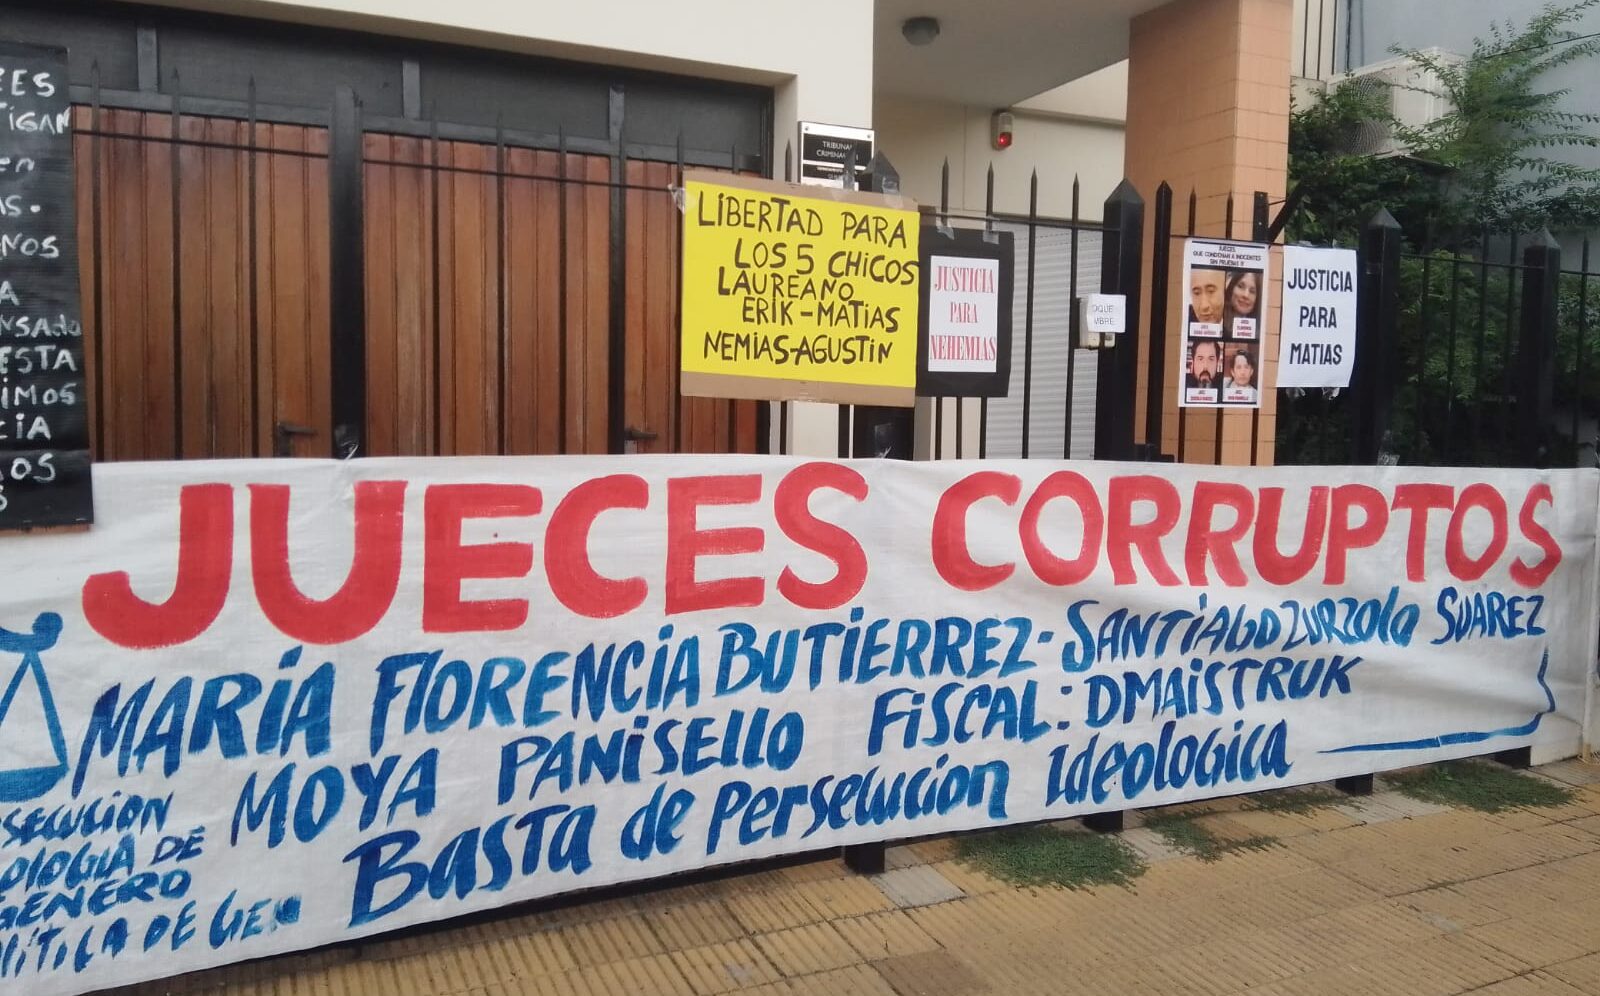 TIGAN
en
NOS
ESTA
IMOS
CIA
TRIBUNAL
CRIMINAL
LIBERTAD PARA
LOS 5 CHICOS
LAUREANO
ERIK - MATIAS
NEMIAS-AGUSTIN
JUSTICIA
PARA
NEHEMIAS
JUECES
QUE CONDENAN A INOCENTES
SIN PRUEBAS !!
JUSTICIA
PARA
MATIAS
JUECES CORRUPTOS
MARIA FLORENCIA BUTIERREZ - SANTIAGO ZURZOLO SUAREZ
MOYA PANISELLO FISCAL: DMAISTRUK
BASTA de PERSECUCION IdeologicA
SECUCION
OLOGIA DE
GÉNERO
LÍTICA DE GEN